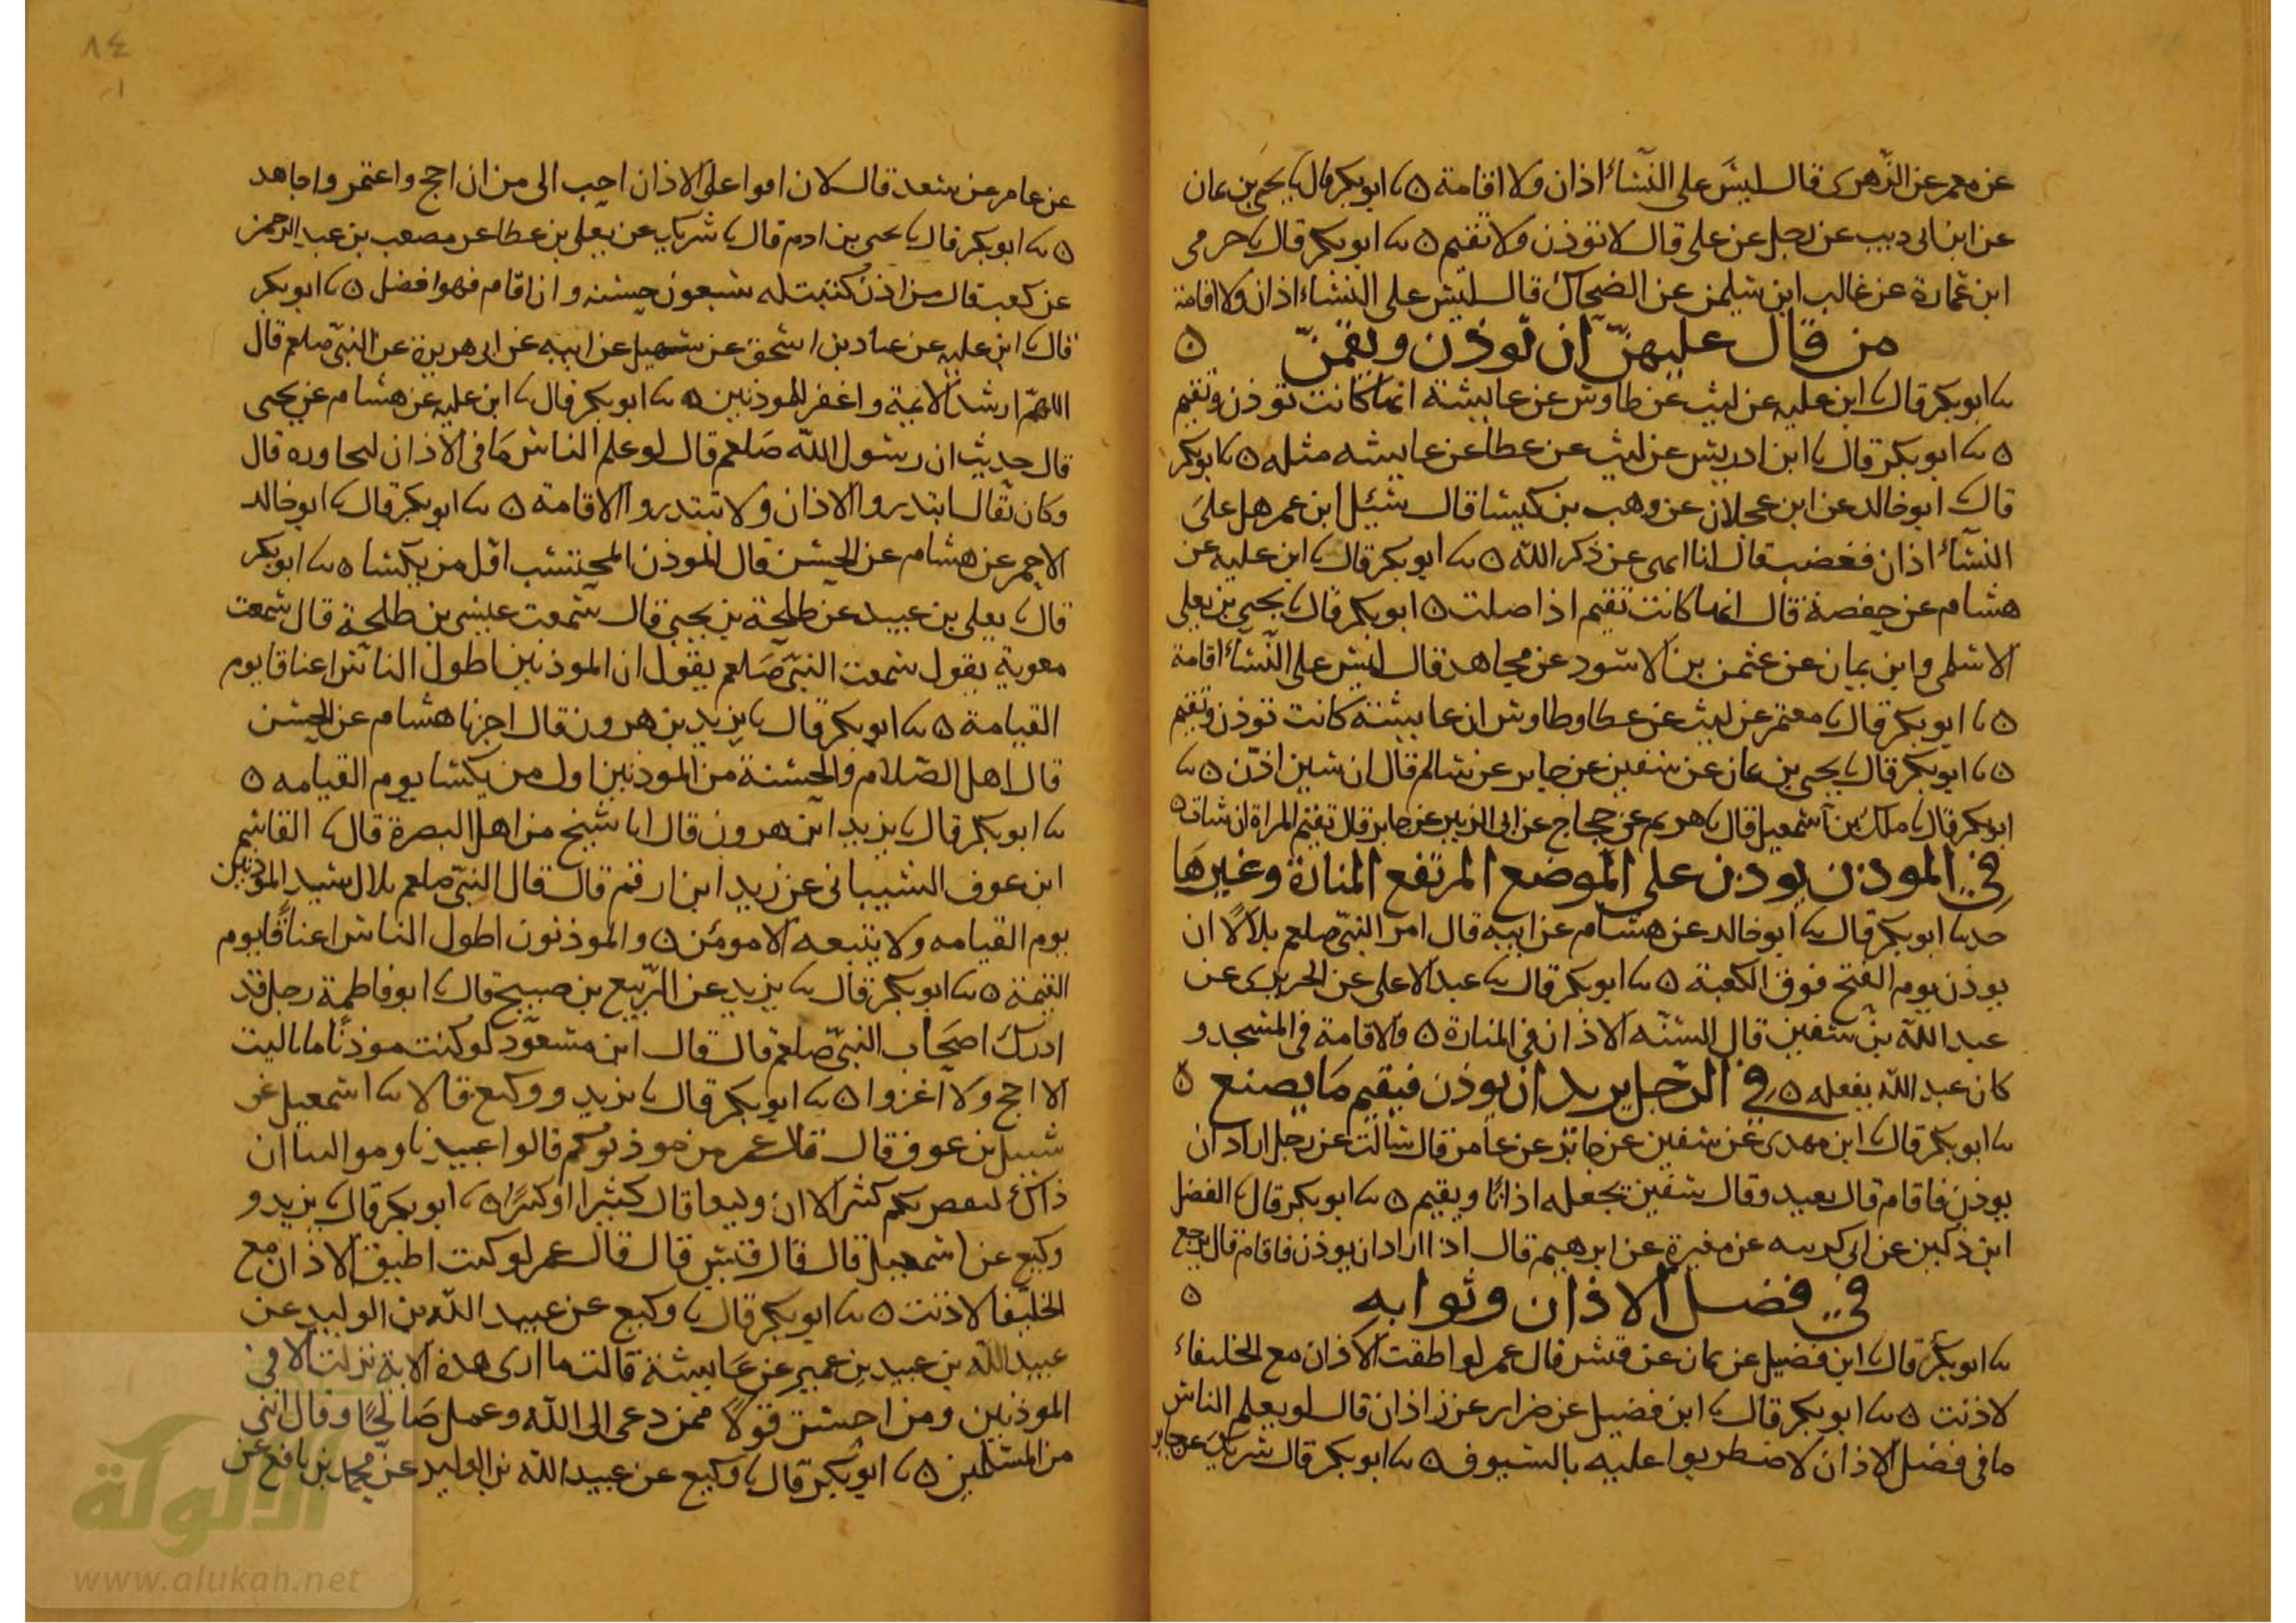 عن معمر عن الزهرى قال ليس على النساء اذان ولا اقامة ٥ ثنا ابو بكر قال ثنا يحيى بن يمان
عن ابن ابى ذيب عن رجل عن على قال لا توذن ولا تقيم ٥ ثنا ابو بكر قال ثنا حرمى
ابن عمارة عن غالب ابن سليمن عن الضحاك قال ليس على النساء اذان ولا اقامة
من قال عليهن ان توذن ويقمن ٥
ثنا ابو بكر قال ثنا ابن عليه عن ليث عن طاوس عن عايشة انها كانت توذن وتقيم
٥ ثنا ابو بكر قال ثنا ابن ادريس عن ليث عن عطا عن عايشه مثله ٥ ثنا ابو بكر
قال ثنا ابو خالد عن ابن عجلان عن وهب بن كيسا قال سئيل ابن عمر هل على
النساء اذان فغضب قال انا انهى عن ذكر الله ٥ ثنا ابو بكر قال ثنا ابن عليه عن
هشام عن حفصة قال انها كانت تقيم اذا صلت ٥ ابو بكر قال ثنا يحيى بن يعلى
الاسلمى وابن يمان عن عثمن بن الاسود عن مجاهد قال ليس على النساء اقامة
٥ ثنا ابو بكر قال ثنا معتمر عن ليث عن عطا وطاوس ان عايشة كانت توذن وتقيم
٥ ثنا ابو بكر قال ثنا يحيى بن يمان عن سفين عن جابر عن سالم قال ان شين اذن ٥ ثنا
ابو بكر قال ثنا ملك بن اسمعيل قال ثنا هريم عن حجاج عن ابى الزبير عن جابر قال تقيم المراة ان شات ٥
في الموذن يوذن على الموضع المرتفع المنارة وغيرها
حدثنا ابو بكر قال ثنا ابو خالد عن هشام عن ابيه قال امر النبى صلعم بلالا ان
يوذن يوم الفتح فوق الكعبة ٥ ثنا ابو بكر قال ثنا عبد الاعلى عن الجريرى عن
عبد الله بن سفين قال السنه الاذان فى المنارة ٥ والاقامة فى المسجد و
كان عبد الله يفعله ٥ في الرجل يريد ان يوذن فيقيم ما يصنع ٥
ثنا ابو بكر قال ثنا ابن مهدى عن سفين عن جابر عن عامر قال سالت عن رجل اراد ان
يوذن فاقام قال يعيد وقال سفين يجعله اذانا ويقيم ٥ ثنا ابو بكر قال ثنا الفضل
ابن دكين عن ابى كدينه عن مغيرة عن ابرهيم قال اذا اراد ان يوذن فاقام قال يرجع
في فضل الاذان وثوابه ٥
ثنا ابو بكر قال ثنا ابن فضيل عن بيان عن قيس قال عمر لو اطقت الاذان مع الخليفاء
لاذنت ٥ ثنا ابو بكر قال ثنا ابن فضيل عن ضرار عن زاذان قال لو يعلم الناس
ما فى فضل الاذان لاضطربوا عليه بالسيوف ٥ ثنا ابو بكر قال شريك عن جابر
٨٤
عن عامر عن سعد قال لان اقوا على الاذان احب الى من ان احج واعتمر واجاهد
٥ ثنا ابو بكر قال ثنا يحيى بن ادم قال ثنا شريك عن يعلى بن عطا عن مصعب بن عبد الرحمن
عن كعب قال من اذن كتبت له سبعون حسنه وان اقام فهو افضل ٥ ثنا ابو بكر
قال ثنا ابن عليه عن عباد بن اسحق عن سهيل عن ابيه عن ابى هريرة عن النبى صلعم قال
اللهم ارشد الائمة واغفر للموذنين ٥ ثنا ابو بكر قال ثنا ابن عليه عن هشام عن يحيى
قال حديث ان رسول الله صلعم قال لو علم الناس ما فى الاذان لتجاوره قال
وكان يقال ابتدروا الاذان ولا تبتدروا الاقامة ٥ ثنا ابو بكر قال ثنا ابو خالد
الاحمر عن هشام عن الحسن قال الموذن المحتسب اول من يكسا ٥ ثنا ابو بكر
قال ثنا يعلى بن عبيد عن طلحة بن يحيى قال سمعت عيسى بن طلحة قال سمعت
معوية يقول سمعت النبى صلعم يقول ان الموذنين اطول الناس اعناقا يوم
القيامة ٥ ثنا ابو بكر قال ثنا يزيد بن هرون قال اخبرنا هشام عن الحسن
قال اهل الصلام والحسنة من الموذنين اول من يكسا يوم القيامه ٥
ثنا ابو بكر قال ثنا يزيد ابن هرون قال انا شيخ من اهل البصرة قال ثنا القاسم
ابن عوف الشيبانى عن زيد ابن ارقم قال قال النبى صلعم بلال سيد الموذنين
يوم القيامه ولا يتبعه الا مومن ٥ والموذنون اطول الناس اعناقا يوم
القيمة ٥ ثنا ابو بكر قال ثنا يزيد عن الربيع بن صبيح قال ثنا ابو فاطمة رجل قد
ادرك اصحاب النبى صلعم قال قال ابن مسعود لو كنت موذنا ما باليت
الا احج ولا اغزوا ٥ ثنا ابو بكر قال ثنا يزيد ووكيع قالا ثنا اسمعيل عن
شبيل بن عوف قال قال عمر من موذنوكم قالوا عبيدنا وموالينا ان
ذاك لنقص بكم كثيرا الا ان وكيعا قال كثيرا او كبيرا ٥ ثنا ابو بكر قال ثنا يزيد و
وكيع عن اسمعيل قال قال قيس قال قال عمر لو كنت اطيق الاذان مع
الخليفا لاذنت ٥ ثنا ابو بكر قال ثنا وكيع عن عبيد الله بن الوليد عن
عبيد الله بن عبيد بن عمير عن عايشة قالت ما ارى هذه الاية نزلت الا فى
الموذنين ومن احسن قولا ممن دعى الى الله وعمل صالحا وقال اننى
من المسلمين ٥ ثنا ابو بكر قال ثنا وكيع عن عبيد الله بن الوليد عن محمد بن نافع عن
الألوكة
www.alukah.net